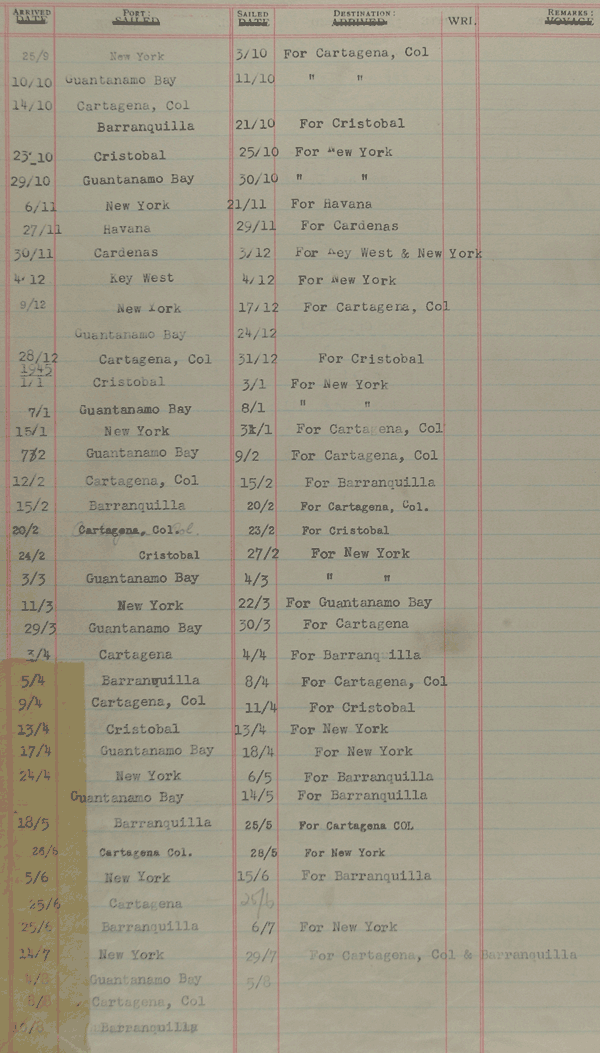 ARRIVED PORT: SAILED DESTINATION: REMARKS:
DATE SAILED DATE ARRIVED WRI. VOYAGE
25/9 New York 3/10 For Cartagena, Col
10/10 Guantanamo Bay 11/10 " "
14/10 Cartagena, Col
Barranquilla 21/10 For Cristobal
23-10 Cristobal 25/10 For New York
29/10 Guantanamo Bay 30/10 " "
6/11 New York 21/11 For Havana
27/11 Havana 29/11 For Cardenas
30/11 Cardenas 3/12 For Key West & New York
4-12 Key West 4/12 For New York
9/12 New York 17/12 For Cartagena, Col
Guantanamo Bay 24/12
28/12 Cartagena, Col 31/12 For Cristobal
1945
1/1 Cristobal 3/1 For New York
7/1 Guantanamo Bay 8/1 " "
15/1 New York 31/1 For Cartagena, Col
7/2 Guantanamo Bay 9/2 For Cartagena, Col
12/2 Cartagena, Col 15/2 For Barranquilla
15/2 Barranquilla 20/2 For Cartagena, Col.
20/2 Cartagena, Col. 23/2 For Cristobal
24/2 Cristobal 27/2 For New York
3/3 Guantanamo Bay 4/3 " "
11/3 New York 22/3 For Guantanamo Bay
29/3 Guantanamo Bay 30/3 For Cartagena
3/4 Cartagena 4/4 For Barranquilla
5/4 Barranquilla 8/4 For Cartagena, Col
9/4 Cartagena, Col 11/4 For Cristobal
13/4 Cristobal 13/4 For New York
17/4 Guantanamo Bay 18/4 For New York
24/4 New York 6/5 For Barranquilla
Guantanamo Bay 14/5 For Barranquilla
18/5 Barranquilla 25/5 For Cartagena COL
26/5 Cartagena Col. 28/5 For New York
5/6 New York 15/6 For Barranquilla
25/6 Cartagena 25/6
25/6 Barranquilla 6/7 For New York
14/7 New York 29/7 For Cartagena, Col & Barranquilla
4/8 Guantanamo Bay 5/8
8/8 Cartagena, Col
10/8 Barranquilla